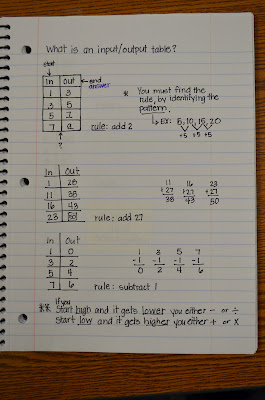 What is an input/output table?
start
In Out
← end
answer
1 3
3 5
5 7
7 9
?
rule: add 2
* You must find the
rule, by identifying the
pattern.
Ex: 5, 10, 15, 20
+5 +5 +5
In Out
1 28
11 38
16 43
23 50
rule: add 27
11 16 23
+27 +27 +27
38 43 50
In Out
1 0
3 2
5 4
7 6
rule: subtract 1
1 3 5 7
-1 -1 -1 -1
0 2 4 6
** If you
Start high and it gets lower you either - or ÷
Start low and it gets higher you either + or x